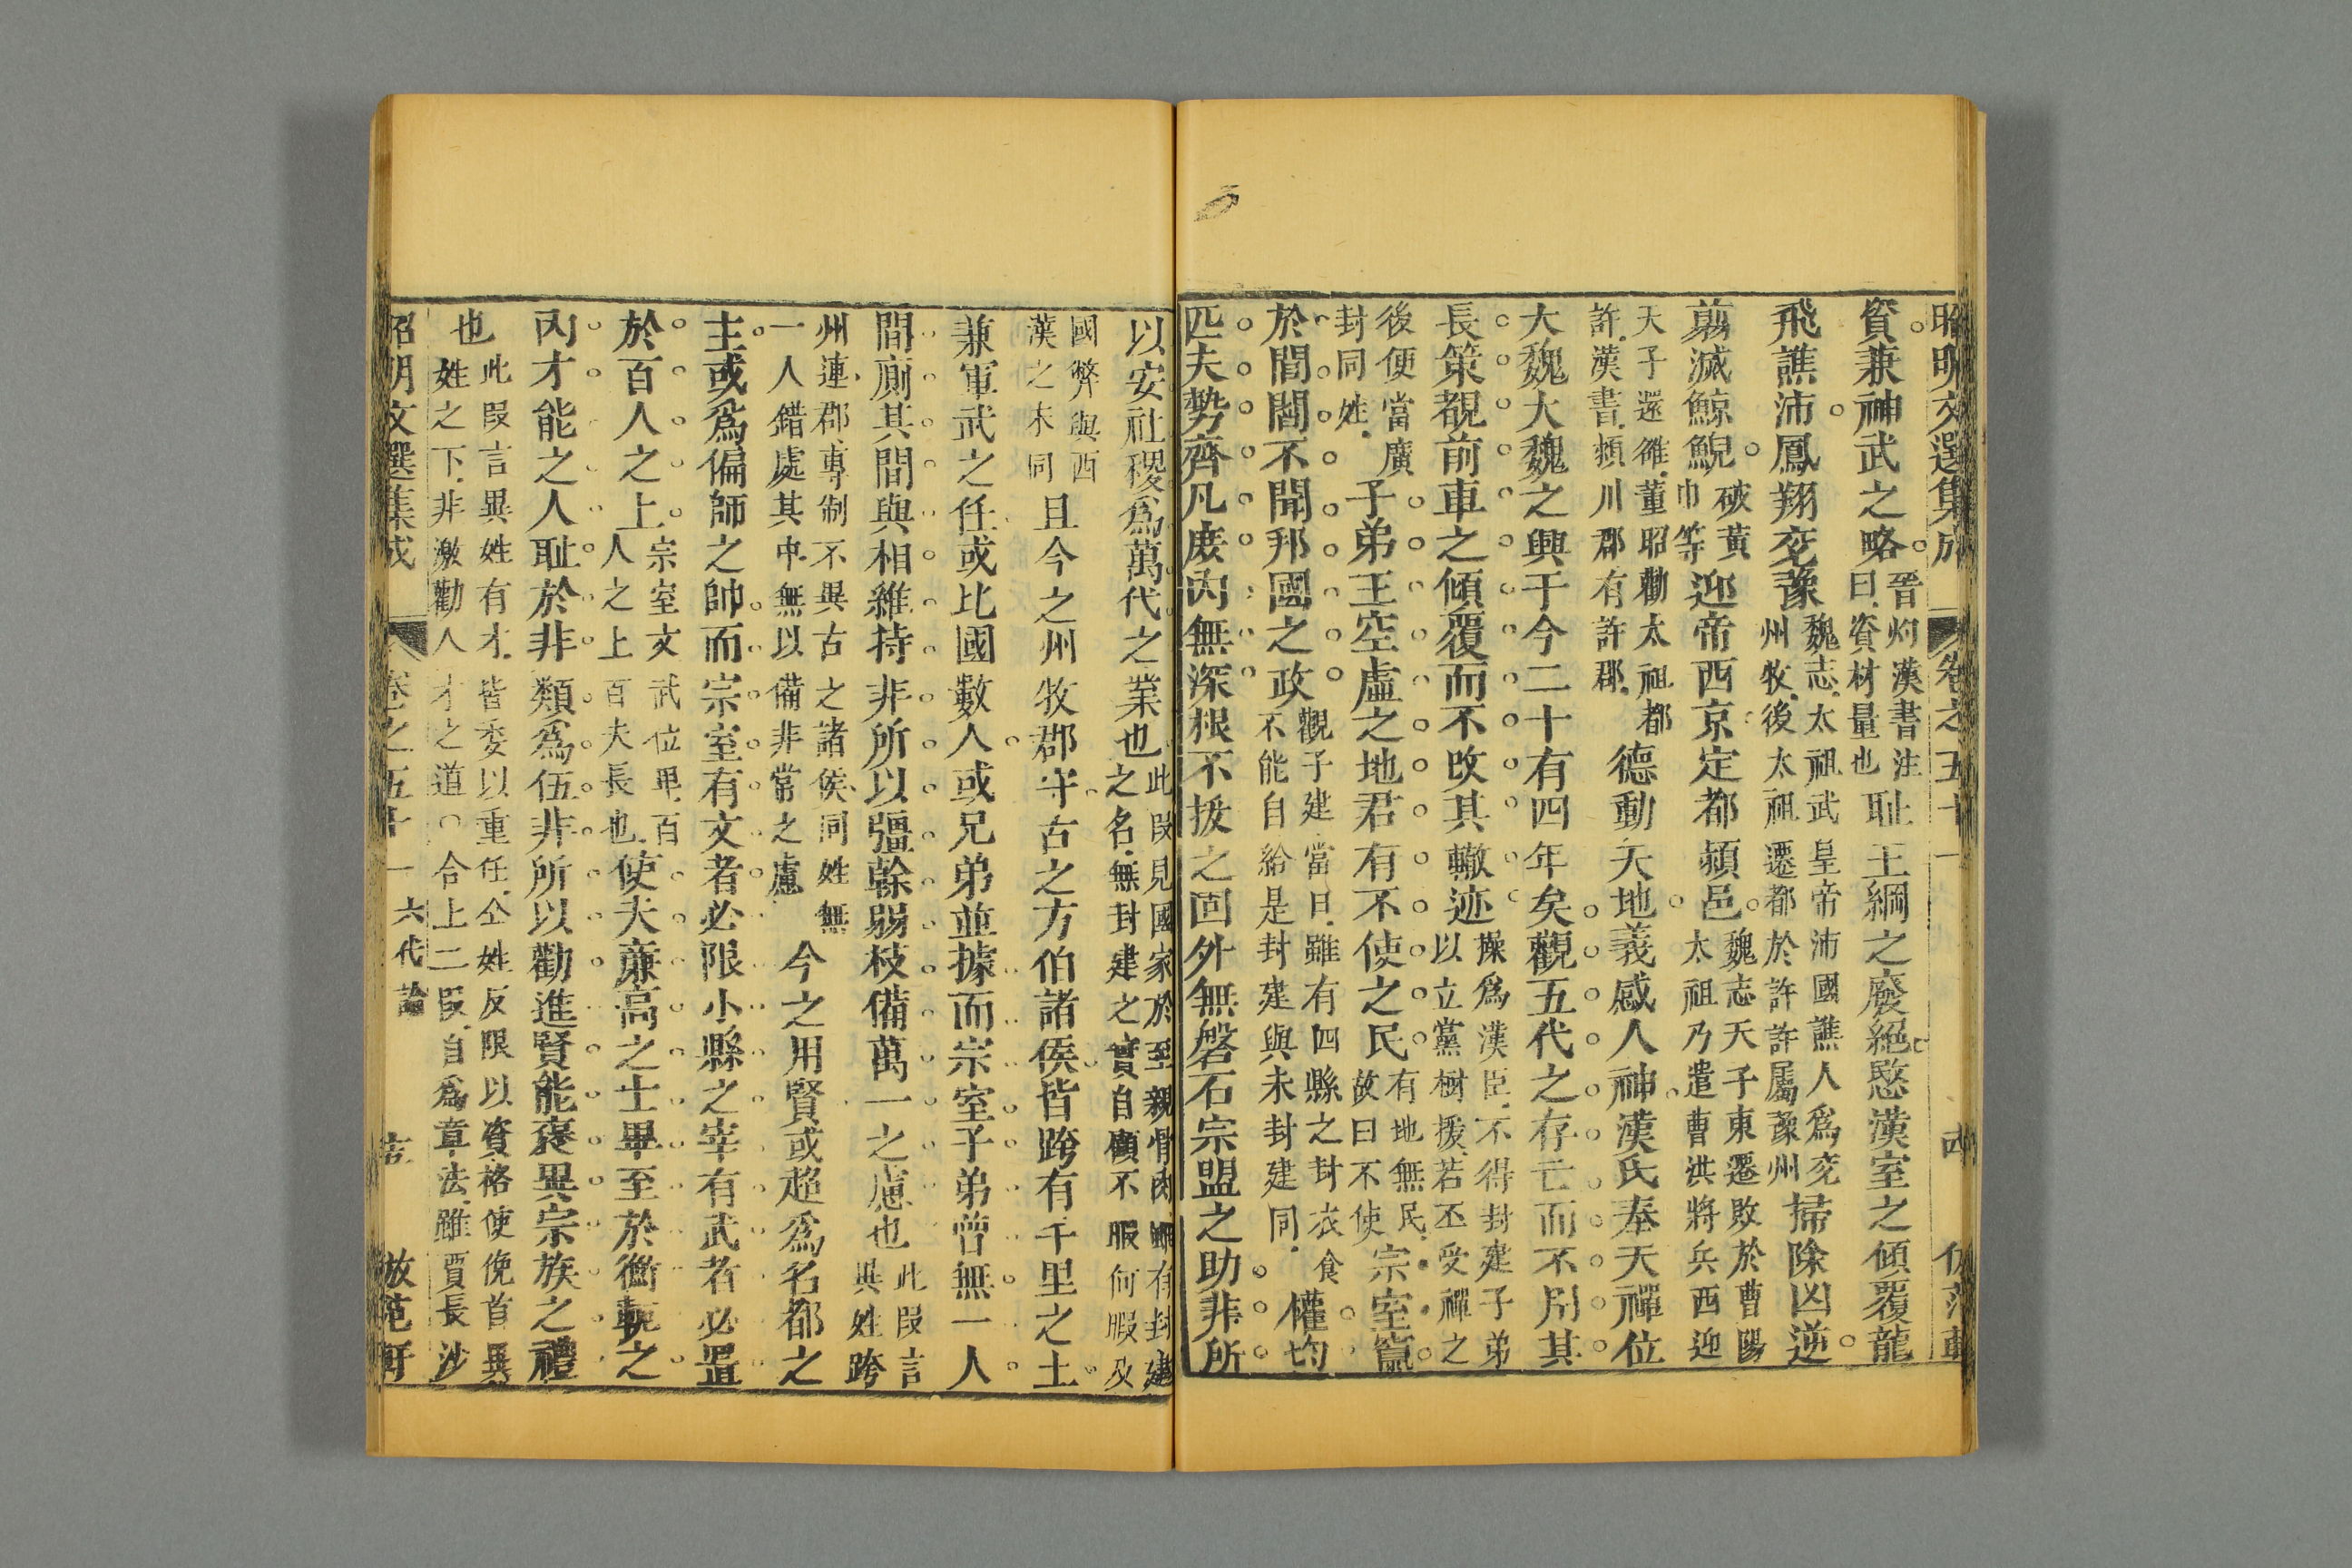 昭明文選集成 卷之五十一
資兼神武之略晉灼漢書注曰資材量也耻王綱之廢絕愍漢室之傾覆龍
飛譙沛鳳翔兗豫魏志太祖武皇帝沛國譙人爲兗州牧後太祖遷都於許許屬豫州掃除凶逆
翦滅鯨鯢破黃巾等迎帝西京定都潁邑魏志天子東遷敗於曹陽太祖乃遣曹洪將兵西迎
天子還雒董昭勸太祖都許漢書潁川郡有許郡德動天地義感人神漢氏奉天禪位
大魏大魏之興于今二十有四年矣觀五代之存亡而不用其
長策覩前車之傾覆而不改其轍迹操爲漢臣不得封建子弟以立黨樹援若丕受禪之
後便當廣封同姓子弟王空虛之地君有不使之民有地無民故曰不使宗室竄
於閭閻不聞邦國之政觀子建當日雖有四縣之封衣食不能自給是封建與未封建同權均
匹夫勢齊凡庶內無深根不拔之固外無磐石宗盟之助非所
以安社稷爲萬代之業也此段見國家於至親骨肉雖有封建之名無封建之實自顧不暇何暇及
國弊與西漢之末同且今之州牧郡守古之方伯諸侯皆跨有千里之土
兼軍武之任或比國數人或兄弟並據而宗室子弟曾無一人
間廁其間與相維持非所以彊榦弱枝備萬一之慮也此段言異姓跨
州連郡專制不異古之諸侯同姓無一人錯處其中無以備非常之慮今之用賢或超爲名都之
主或爲偏師之帥而宗室有文者必限小縣之宰有武者必置
於百人之上宗室文武位卑百人之上百夫長也使夫廉高之士畢至於衡軛之
內才能之人耻於非類爲伍非所以勸進賢能褒異宗族之禮
也此段言異姓有才皆委以重任仝姓反限以資格使俛首異姓之下非激勸人才之道○合上二段自爲章法雖賈長沙
昭明文選集成 卷之五十一 六代論 放范軒